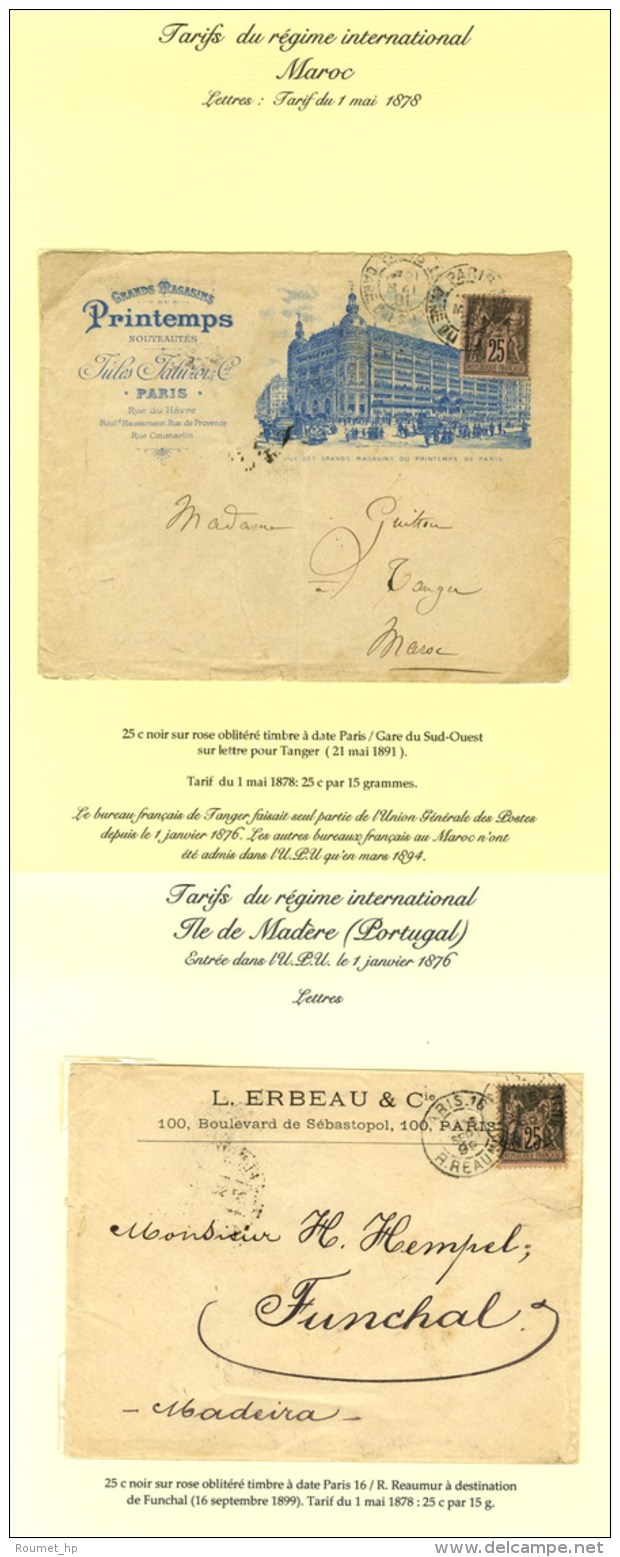 Tarifs du régime international
Maroc
Lettres : Tarif du 1 mai 1878
GRANDS MAGASINS
DU
Printemps
NOUVEAUTÉS
Jules Jaluzot & Cie
PARIS
Rue du Hâvre
Bould Haussmann, Rue de Provence
Rue Caumartin
PARIS
25
REPUBLIQUE FRANCAISE
VUE DES GRANDS MAGASINS DU PRINTEMPS DE PARIS
Madame Guitton
à Tanger
Maroc
25 c noir sur rose oblitéré timbre à date Paris / Gare du Sud-Ouest
sur lettre pour Tanger ( 21 mai 1891 ).
Tarif du 1 mai 1878: 25 c par 15 grammes.
Le bureau français de Tanger faisait seul partie de l'Union Générale des Postes
depuis le 1 janvier 1876. Les autres bureaux français au Maroc n'ont
été admis dans l'U.P.U qu'en mars 1894.
Tarifs du régime international
Ile de Madère (Portugal)
Entrée dans l'U.P.U. le 1 janvier 1876
Lettres
L. ERBEAU & Cie
100, Boulevard de Sébastopol, 100, PARIS
PARIS 16
SEPT
R. REAUM
25
REPUBLIQUE FRANCAISE
Monsieur H. Hempel,
Funchal.
- Madeira -
25 c noir sur rose oblitéré timbre à date Paris 16 / R. Reaumur à destination
de Funchal (16 septembre 1899). Tarif du 1 mai 1878 : 25 c par 15 g.
Roumet_hp
delcampe.net